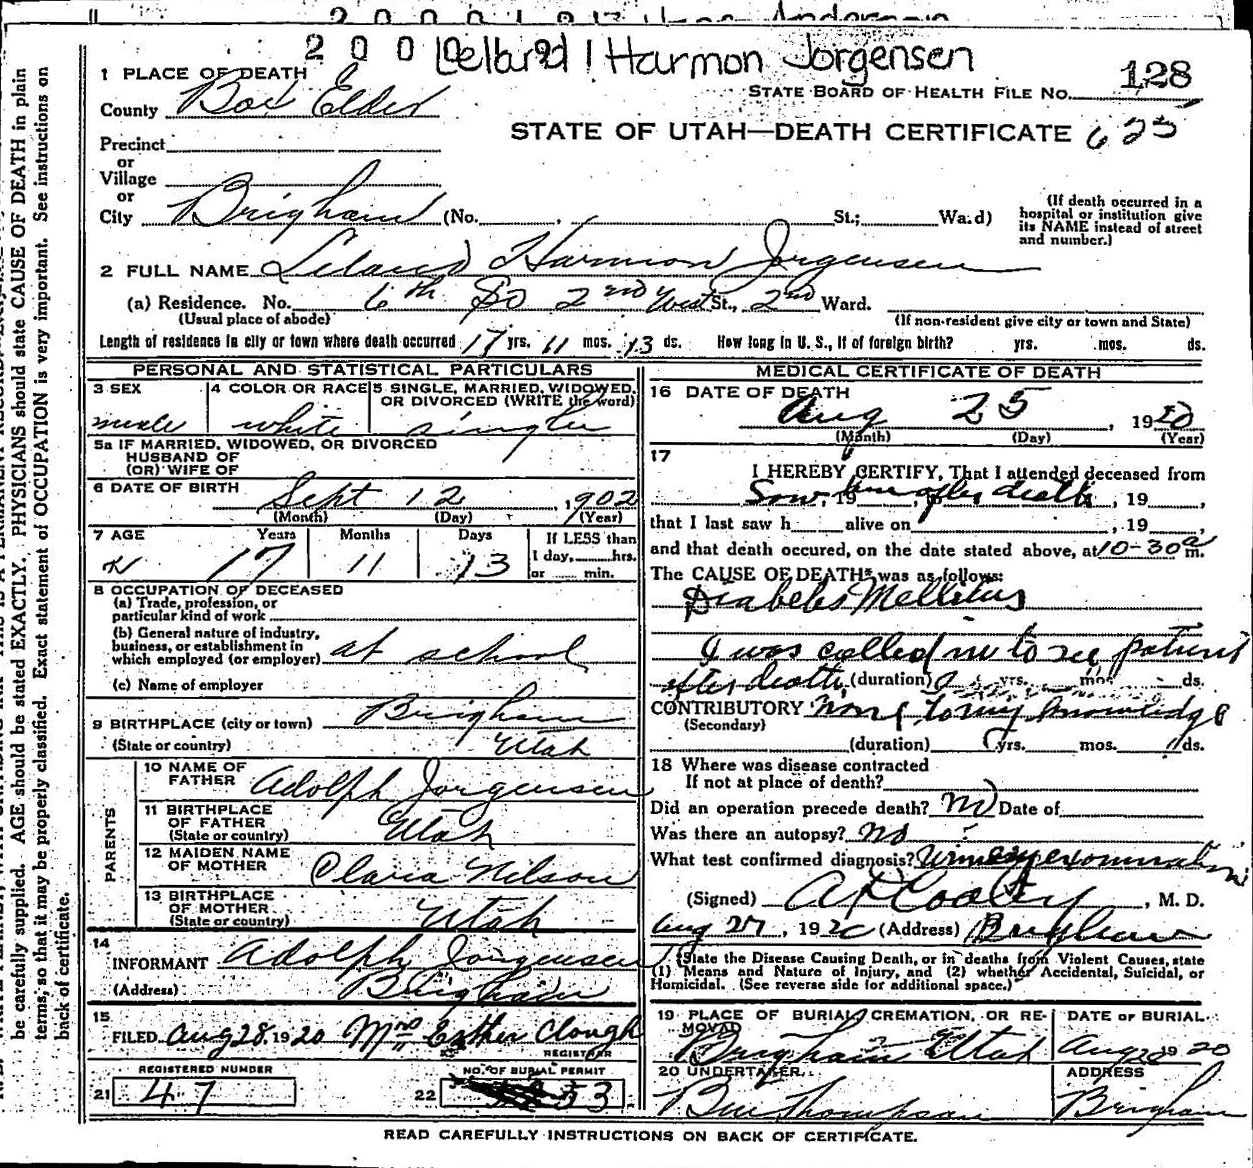 2 0 0 Leland Harmon Jorgensen
128
STATE BOARD OF HEALTH FILE NO.
STATE OF UTAH—DEATH CERTIFICATE 625
1 PLACE OF DEATH
County Box Elder
Precinct
or
Village
or
City Brigham (No. , St.; Ward)
(If death occurred in a
hospital or institution give
its NAME instead of street
and number.)
2 FULL NAME Leland Harmon Jorgensen
(a) Residence. No. 6th So 2nd West St., 2nd Ward.
(Usual place of abode) (If non-resident give city or town and State)
Length of residence in city or town where death occurred 17 yrs. 11 mos. 13 ds. How long in U. S., if of foreign birth? yrs. mos. ds.
PERSONAL AND STATISTICAL PARTICULARS
3 SEX
male
4 COLOR OR RACE
white
5 SINGLE, MARRIED, WIDOWED,
OR DIVORCED (WRITE the word)
single
5a IF MARRIED, WIDOWED, OR DIVORCED
HUSBAND OF
(OR) WIFE OF
6 DATE OF BIRTH Sept 12, 1902
(Month) (Day) (Year)
7 AGE Years Months Days
17 11 13
If LESS than
1 day, hrs.
or min.
8 OCCUPATION OF DECEASED
(a) Trade, profession, or
particular kind of work
(b) General nature of industry,
business, or establishment in
which employed (or employer) at school
(c) Name of employer
9 BIRTHPLACE (city or town) Brigham
(State or country) Utah
PARENTS
10 NAME OF
FATHER Adolph Jorgensen
11 BIRTHPLACE
OF FATHER
(State or country) Utah
12 MAIDEN NAME
OF MOTHER Claria Nilson
13 BIRTHPLACE
OF MOTHER
(State or country) Utah
14
INFORMANT Adolph Jorgensen
(Address) Brigham
15
FILED Aug 28, 1920 Mrs Esther Clough
REGISTRAR
REGISTERED NUMBER
21 47
NO. OF BURIAL PERMIT
22 53
MEDICAL CERTIFICATE OF DEATH
16 DATE OF DEATH
Aug 25, 1920
(Month) (Day) (Year)
17
I HEREBY CERTIFY, That I attended deceased from
Saw, 19 after death, 19
that I last saw h alive on , 19
and that death occured, on the date stated above, at 10-30 a m.
The CAUSE OF DEATH* was as follows:
Diabetes Mellitus
I was called in to see patient
after death, (duration) yrs. mos. ds.
CONTRIBUTORY None to my knowledge
(Secondary)
(duration) yrs. mos. ds.
18 Where was disease contracted
If not at place of death?
Did an operation precede death? No Date of
Was there an autopsy? No
What test confirmed diagnosis? Urinary examination
(Signed) A D Cooley, M. D.
Aug 27, 1920 (Address) Brigham
(State the Disease Causing Death, or in deaths from Violent Causes, state
(1) Means and Nature of Injury, and (2) whether Accidental, Suicidal, or
Homicidal. (See reverse side for additional space.)
19 PLACE OF BURIAL, CREMATION, OR RE-
MOVAL
Brigham Utah
DATE OF BURIAL
Aug 28 1920
20 UNDERTAKER
Ben Thompson
ADDRESS
Brigham
READ CAREFULLY INSTRUCTIONS ON BACK OF CERTIFICATE.
be carefully supplied. AGE should be stated EXACTLY. PHYSICIANS should state CAUSE OF DEATH in plain
terms, so that it may be properly classified. Exact statement of OCCUPATION is very important. See instructions on
back of certificate.